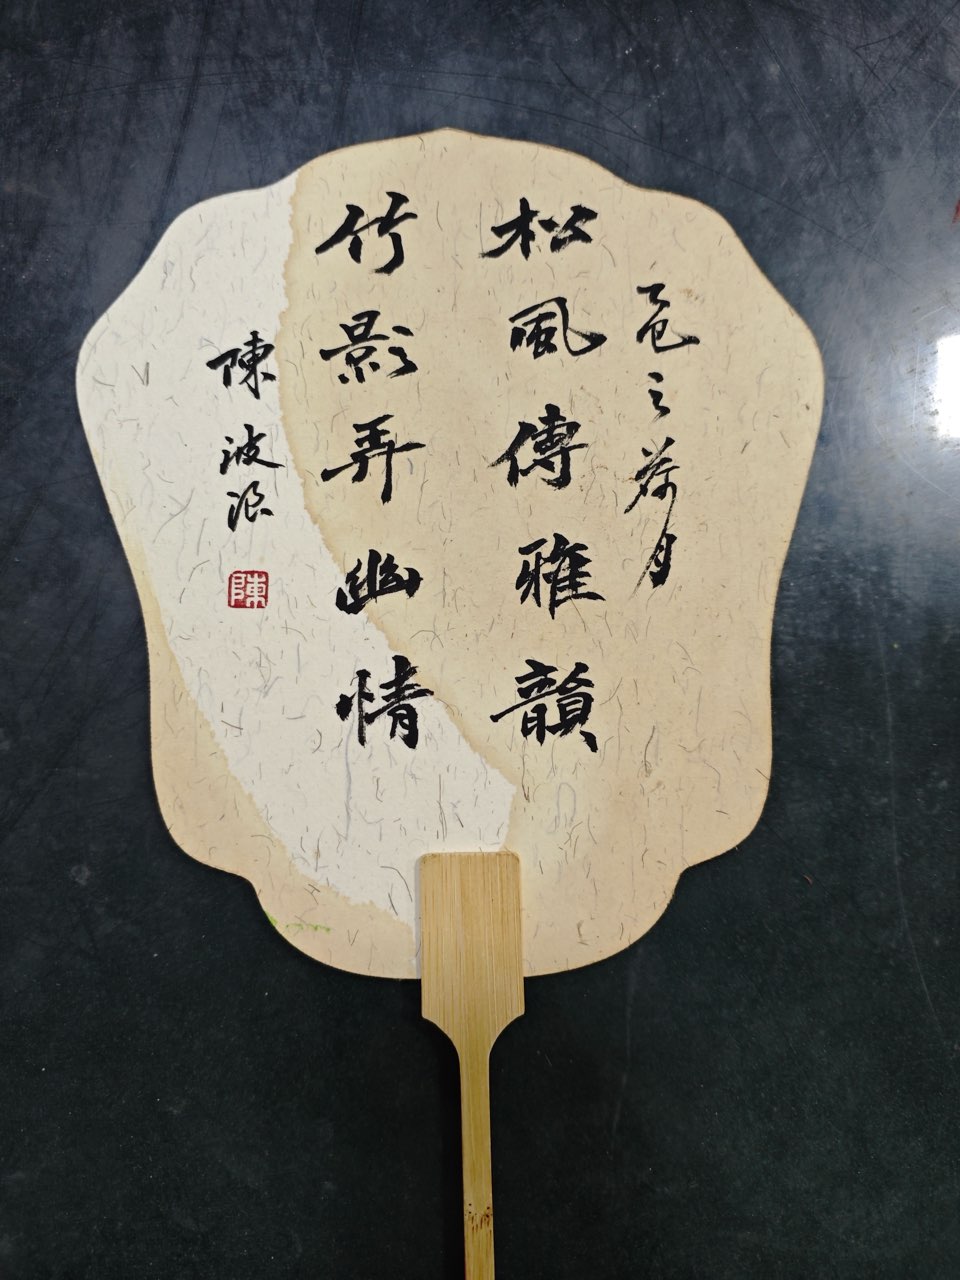 乙巳之荷月
松風傳雅韻
竹影弄幽情
陳波浪
陳